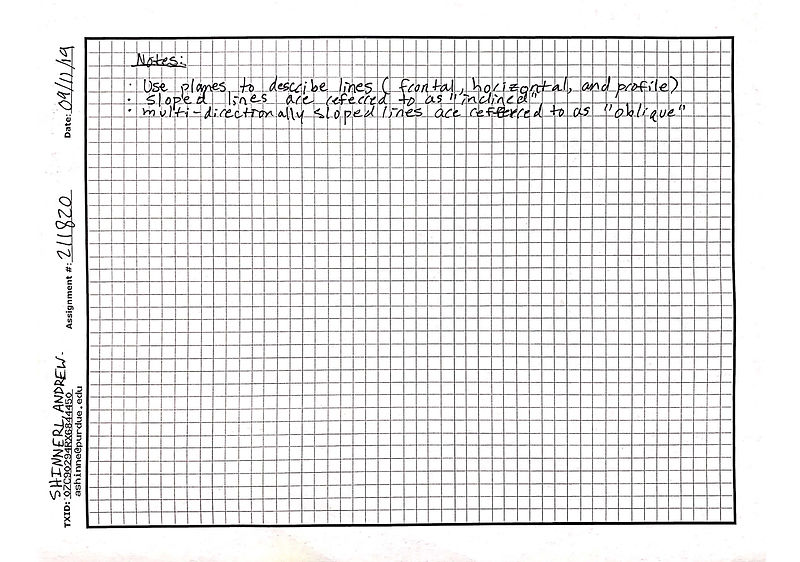 Notes:
· Use planes to describe lines (frontal, horizontal, and profile)
· sloped lines are referred to as "inclined"
· multi-directionally sloped lines are referred to as "oblique"
Date: 09/11/19
Assignment #: 211820
SHINNERL, ANDREW.
TXID: OZC90294RX6844450
ashinne@purdue.edu